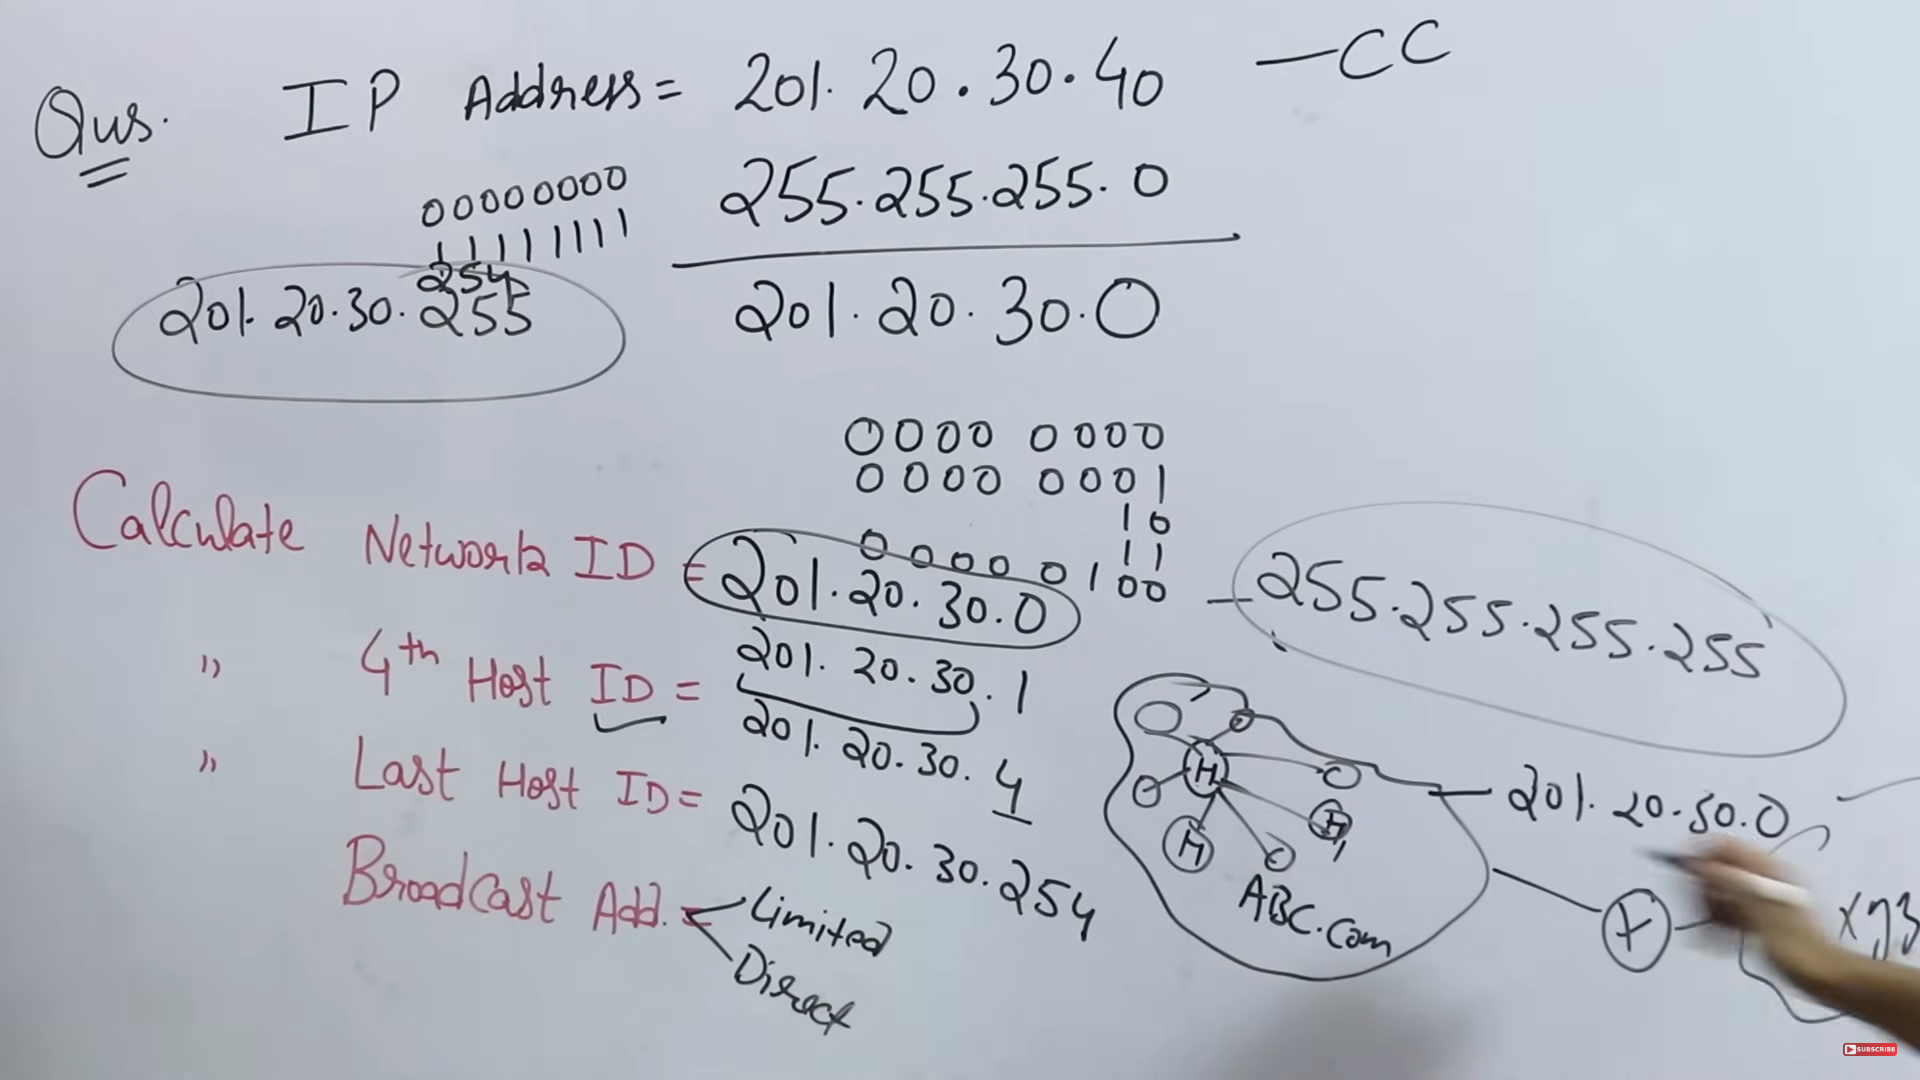 Qus. IP Address = 201.20.30.40 — CC
255.255.255.0
00000000
11111111
254
201.20.30.255
201.20.30.0
0000 0000
0000 0001
10
11
0000 0100
Calculate Network ID = 201.20.30.0
— 255.255.255.255
" 4th Host ID = 201.20.30.1
201.20.30.4
" Last Host ID = 201.20.30.254
Broadcast Add. =
Limited
Direct
H
H
H
ABC.com
— 201.20.30.0
SUBSCRIBE